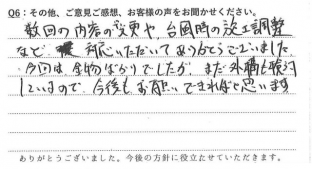 Q6：その他、ご意見ご感想、お客様の声をお聞かせください。
数回の内容の変更や、台風時の施工調整
など 対応いただいてありがとうございました
今回は金物ばかりでしたが、まだ外構も残っ
ているので、今後もお願いできればと思います
ありがとうございました。今後の方針に役立たせていただきます。